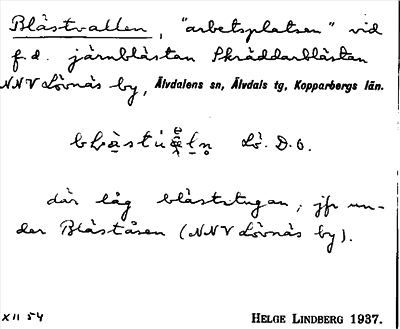 Blästvallen, "arbetsplatsen" vid
f.d. järnblästan Skräddarblästan
NNV Lövnäs by, Älvdalens sn, Älvdals tg, Kopparbergs län.
Lö. D.o.
där låg bläststugan, jfr un-
der Bläståsen (NNV Lövnäs by).
XII 54
HELGE LINDBERG 1937.